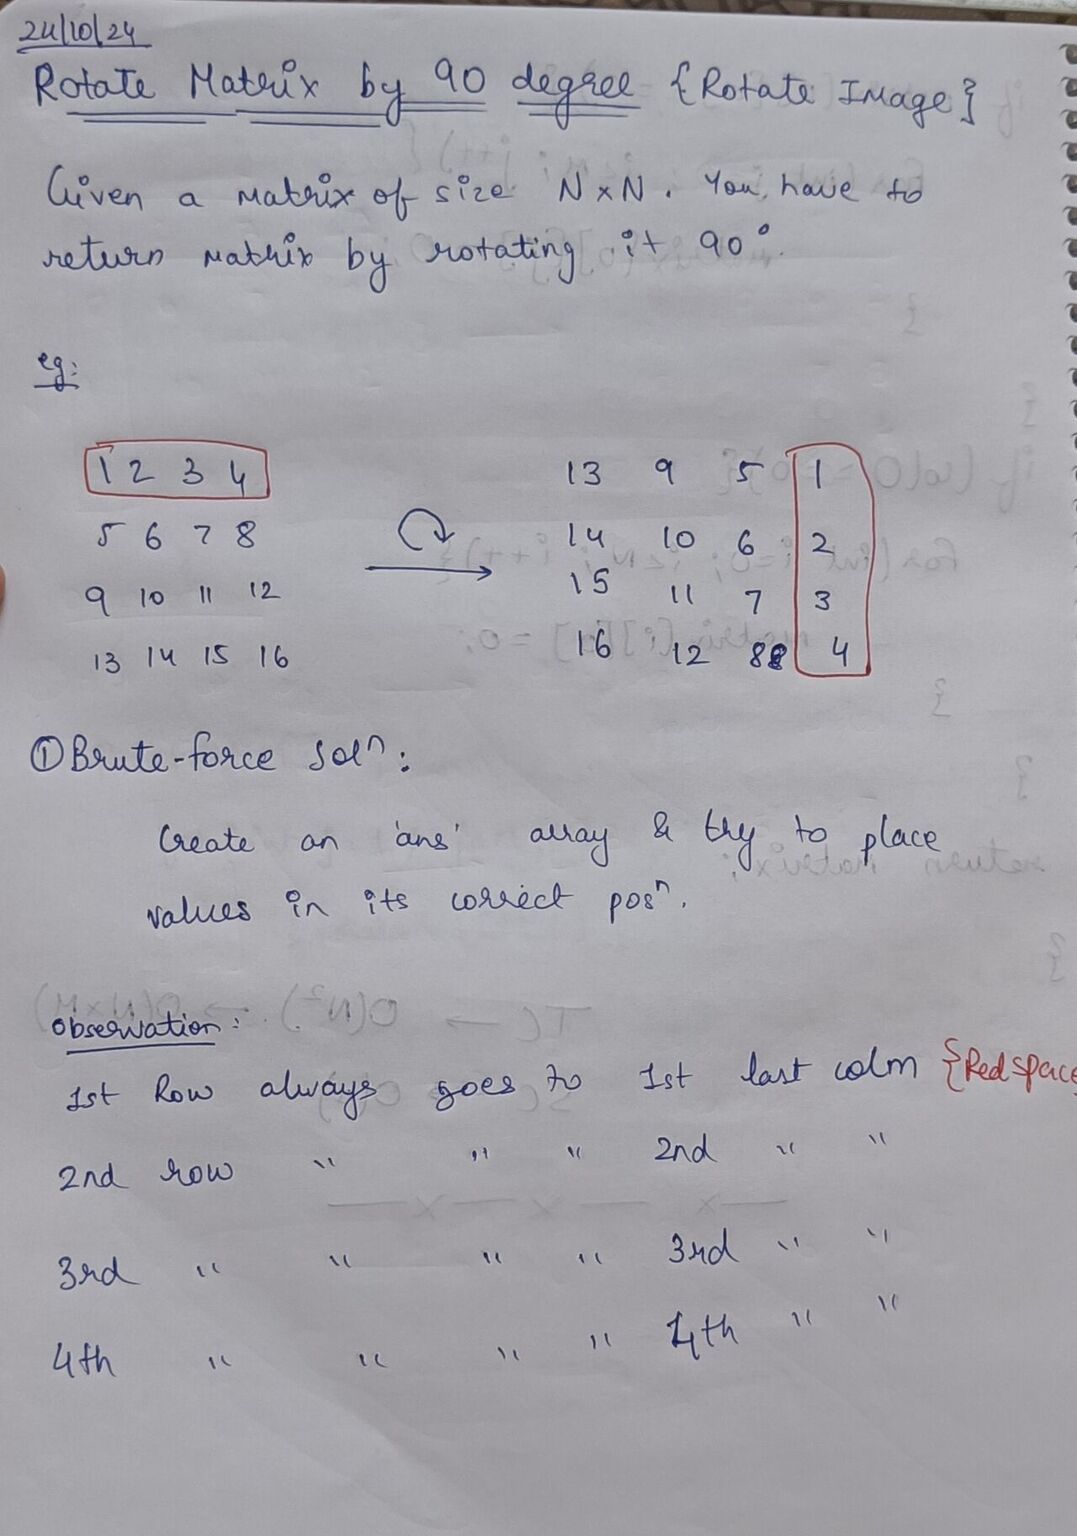 24/10/24
Rotate Matrix by 90 degree {Rotate Image}
Given a matrix of size N x N. You have to
return matrix by rotating it 90°.
eg:
1 2 3 4 13 9 5 1
5 6 7 8 14 10 6 2
9 10 11 12 15 11 7 3
13 14 15 16 16 12 8 4
① Brute-force solⁿ:
Create an 'ans' array & try to place
values in its correct posⁿ.
observation:
1st Row always goes to 1st last colm {Red space
2nd row " " " 2nd " "
3rd " " " " 3rd " "
4th " " " " 4th " "